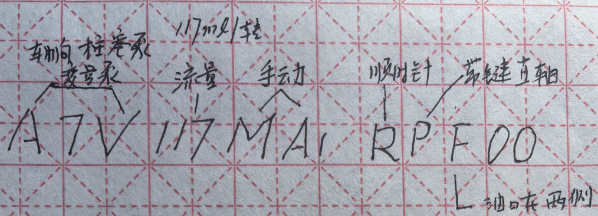 117ml/转
轴向柱塞泵
变量泵 流量 手动 顺时针 带键直轴
A7V 117 MA1 RPF00
油口在两侧